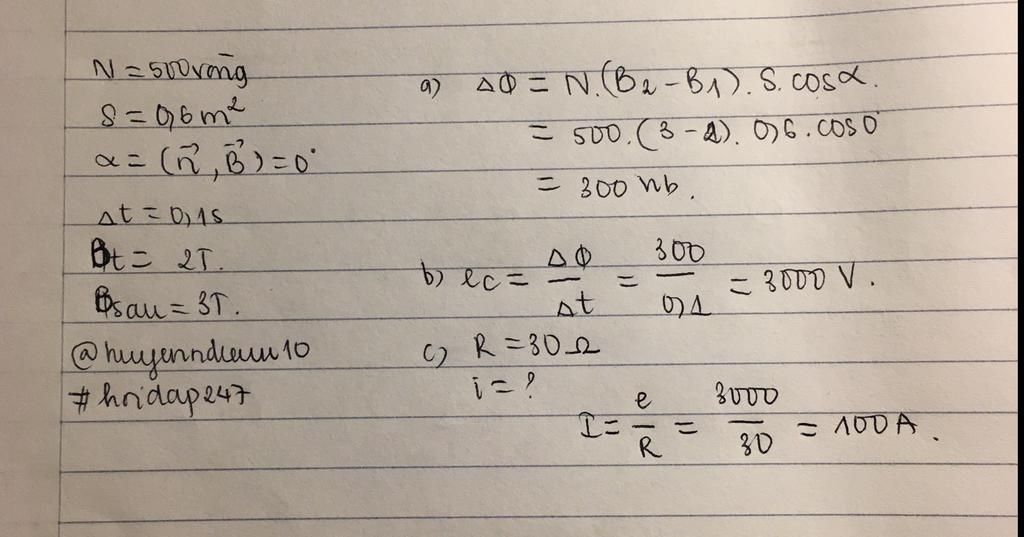 N = 500 vòng
S = 0,6 m²
α = (n⃗, B⃗) = 0°
Δt = 0,1s
Bt = 2T.
Bsau = 3T.
@huyenndieuu10
#hoidap247
a) ΔΦ = N.(B2 - B1). S. cosα.
= 500. (3 - 2). 0,6. cos0
= 300 wb.
b) ec = ΔΦ/Δt = 300/0,1 = 3000 V.
c) R = 30Ω
i = ?
I = e/R = 3000/30 = 100A.